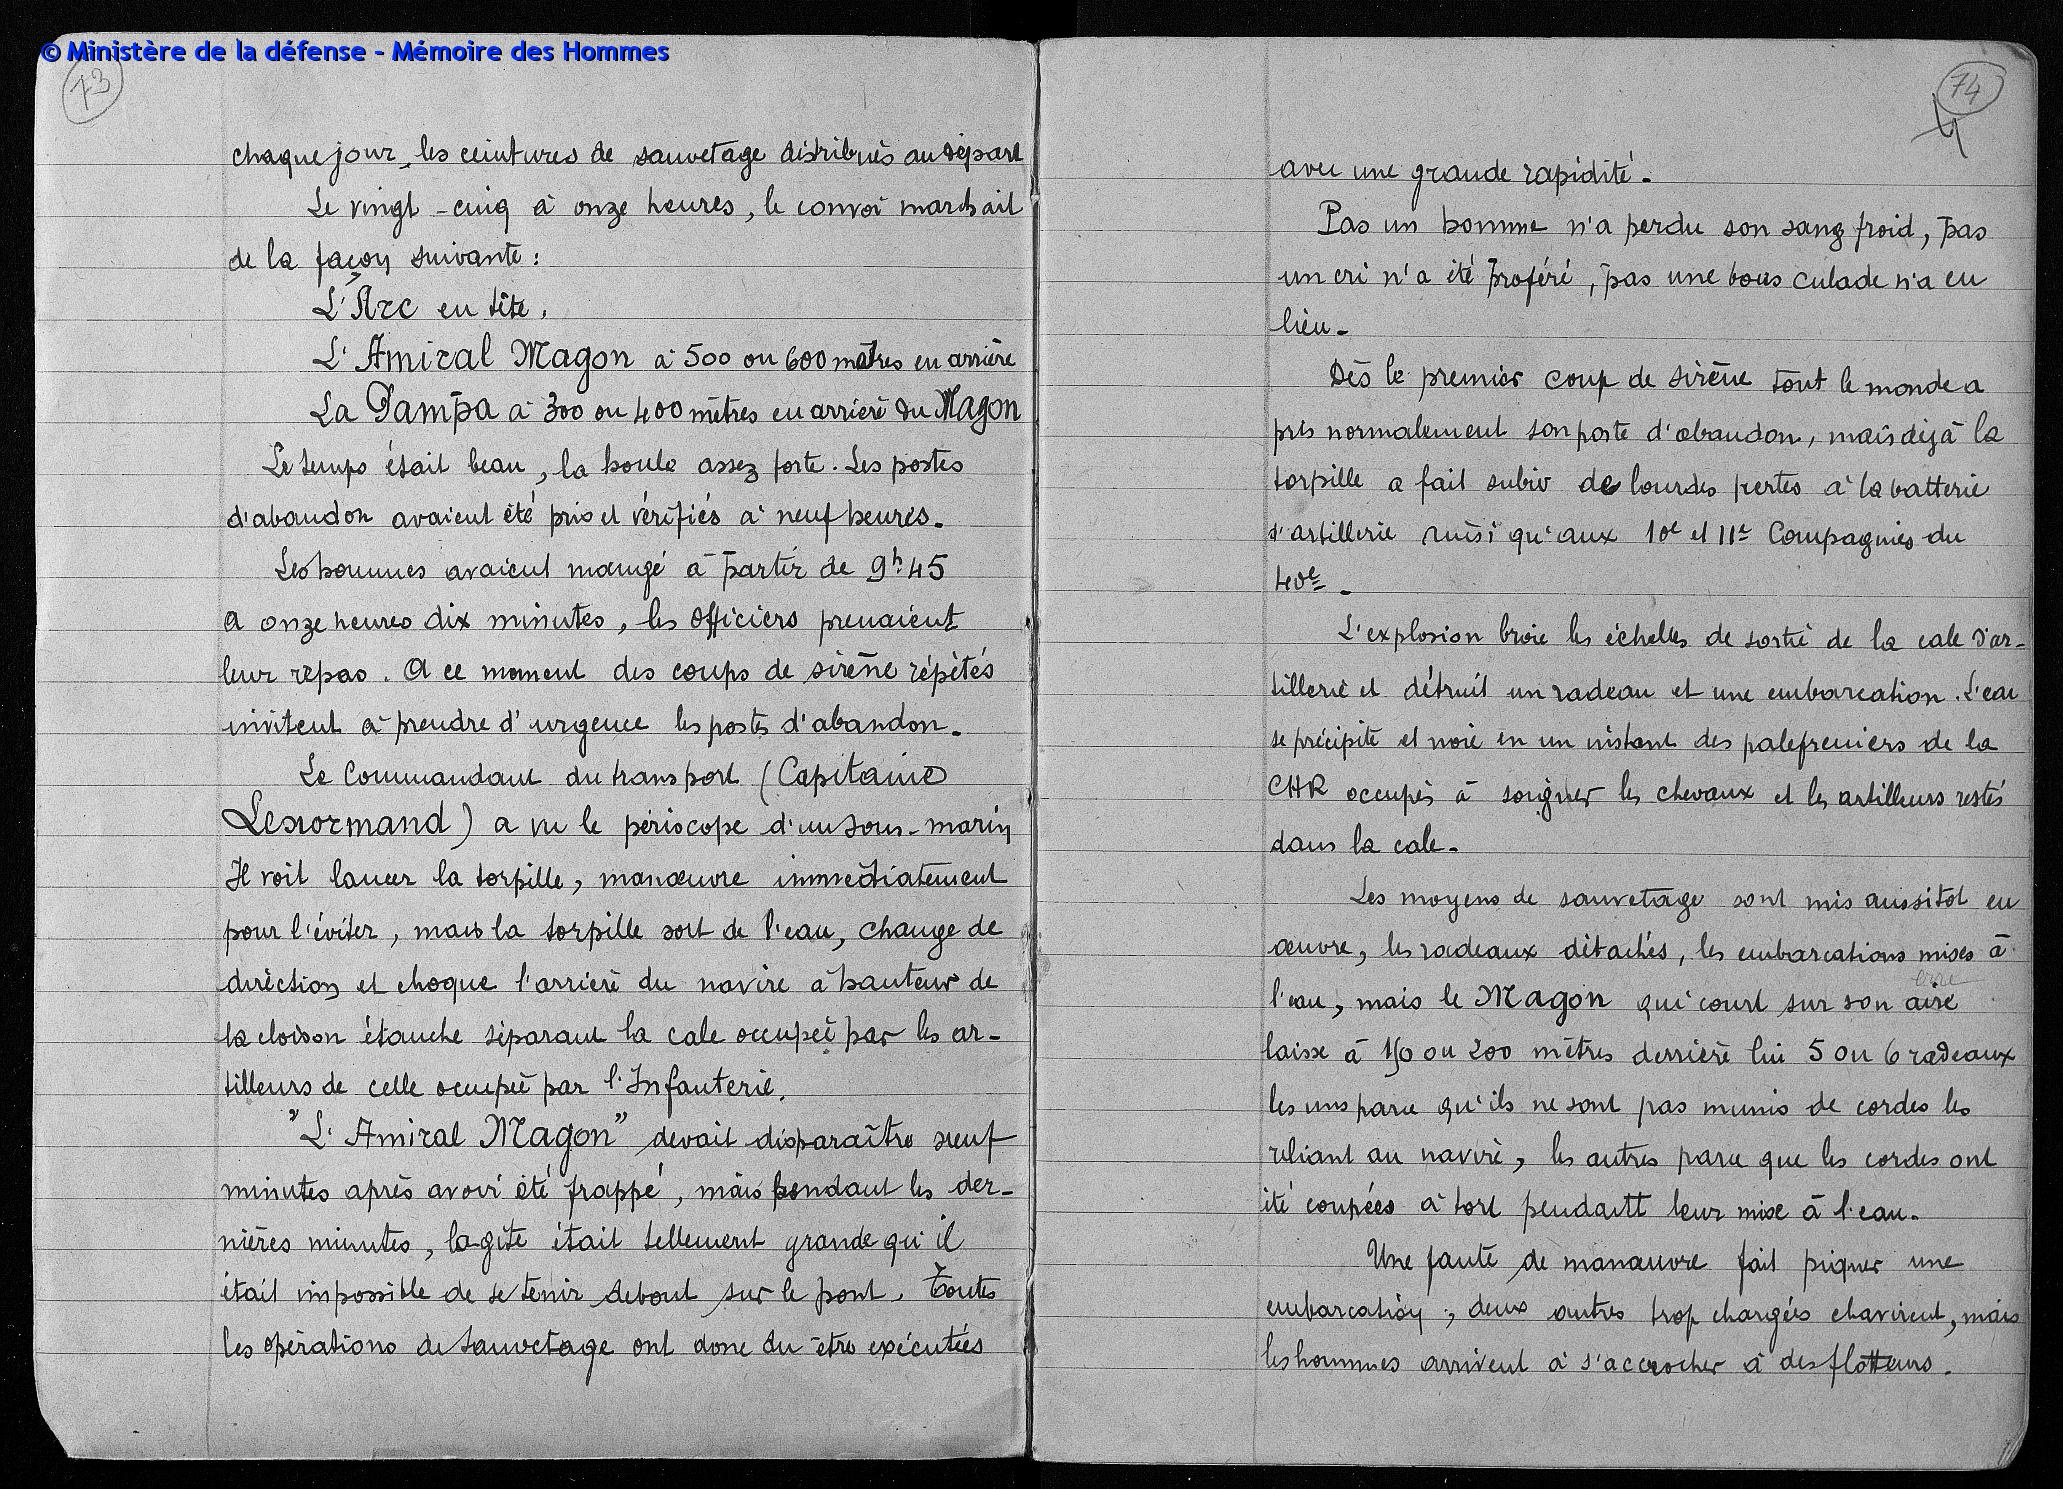 © Ministère de la défense - Mémoire des Hommes
73
chaque jour, les ceintures de sauvetage distribués au départ
Le vingt-cinq à onze heures, le convoi marchait
de la façon suivante :
L'Arc en tête.
L'Amiral Magon à 500 ou 600 mètres en arrière
La Tampa à 300 ou 400 mètres en arrière du Magon
Le temps était beau, la houle assez forte. Les postes
d'abandon avaient été pris et vérifiés à neuf heures.
Les hommes avaient mangé à partir de 9h45
A onze heures dix minutes, les officiers prenaient
leur repas. A ce moment des coups de sirène répétés
invitent à prendre d'urgence les postes d'abandon.
Le Commandant du transport (Capitaine
Lenormand) a vu le périscope d'un sous-marin
Il voit lancer la torpille, manœuvre immédiatement
pour l'éviter, mais la torpille sort de l'eau, change de
direction et choque l'arrière du navire à hauteur de
la cloison étanche séparant la cale occupée par les ar-
tilleurs de celle occupée par l'Infanterie.
"L'Amiral Magon" devait disparaître neuf
minutes après avoir été frappé, mais pendant les der-
nières minutes, la gîte était tellement grande qu'il
était impossible de se tenir debout sur le pont. Toutes
les opérations de sauvetage ont donc du être exécutées
74
avec une grande rapidité.
Pas un homme n'a perdu son sang froid, pas
un cri n'a été proféré, pas une bousculade n'a eu
lieu.
Dès le premier coup de sirène tout le monde a
pris normalement son poste d'abandon, mais déjà la
torpille a fait subir de lourdes pertes à la batterie
d'artillerie ainsi qu'aux 10e et 11e Compagnies du
40e.
L'explosion broie les échelles de sortie de la cale d'ar-
tillerie et détruit un radeau et une embarcation. L'eau
se précipite et noie en un instant des palefreniers de la
CHR occupés à soigner les chevaux et les artilleurs restés
dans la cale.
Les moyens de sauvetage sont mis aussitot en
œuvre, les radeaux détachés, les embarcations mises à
l'eau, mais le Magon qui court sur son aire
laisse à 150 ou 200 mètres derrière lui 5 ou 6 radeaux
les uns parce qu'ils ne sont pas munis de cordes les
reliant au navire, les autres parce que les cordes ont
été coupées à tort pendant leur mise à l'eau.
Une faute de manœuvre fait piquer une
embarcation ; deux autres trop chargées chavirent, mais
les hommes arrivent à s'accrocher à des flotteurs.